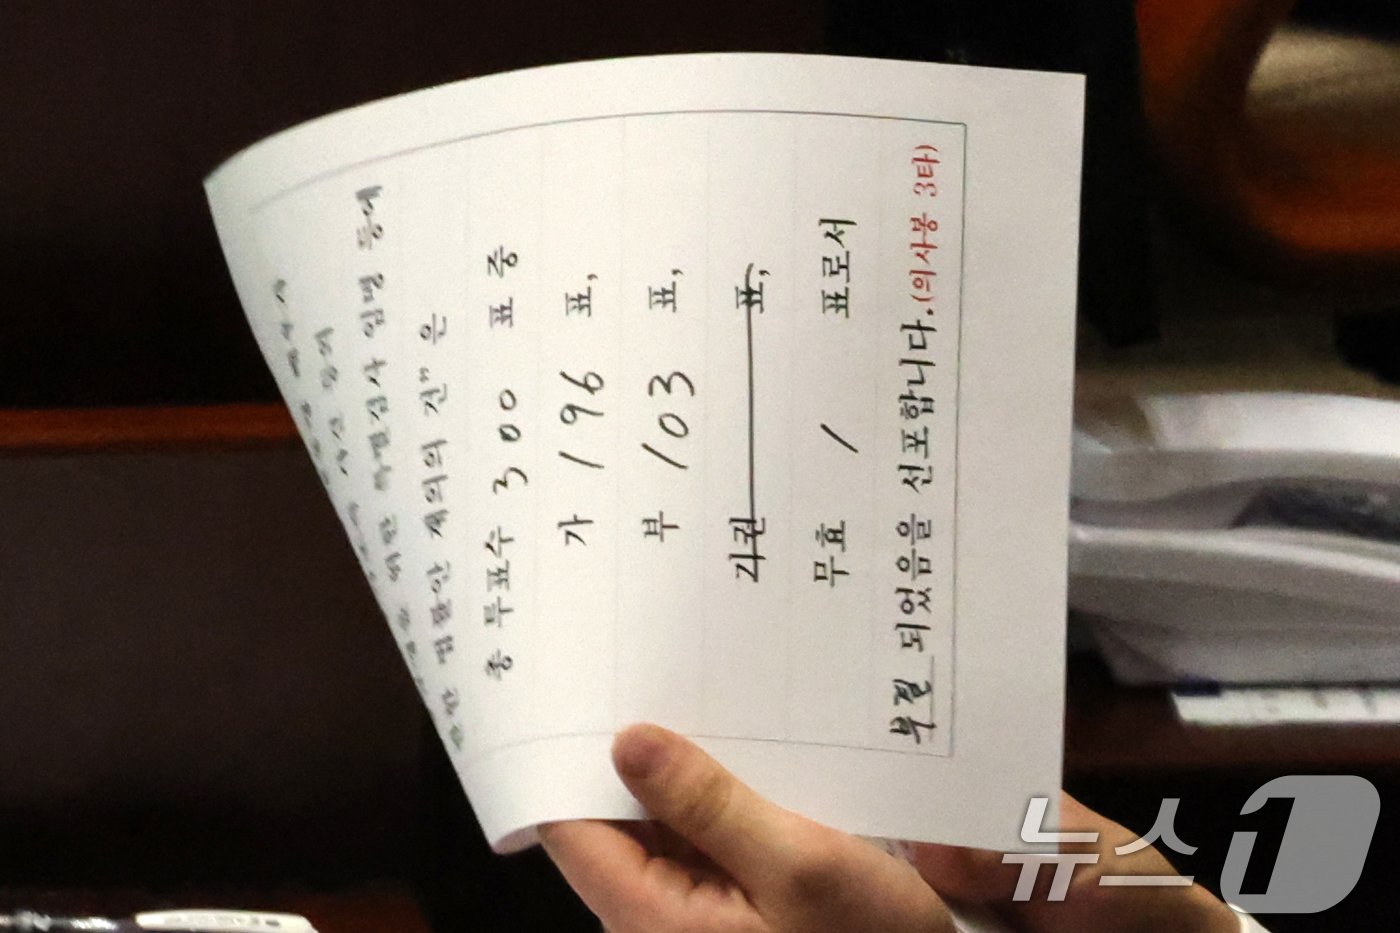 특별검사 임명 등에
법률안 재의의 건" 은
총 투표수 300 표 중
가 196 표,
부 103 표,
기권 표,
무효 1 표로서
부결 되었음을 선포합니다.(의사봉 3타)
뉴스1